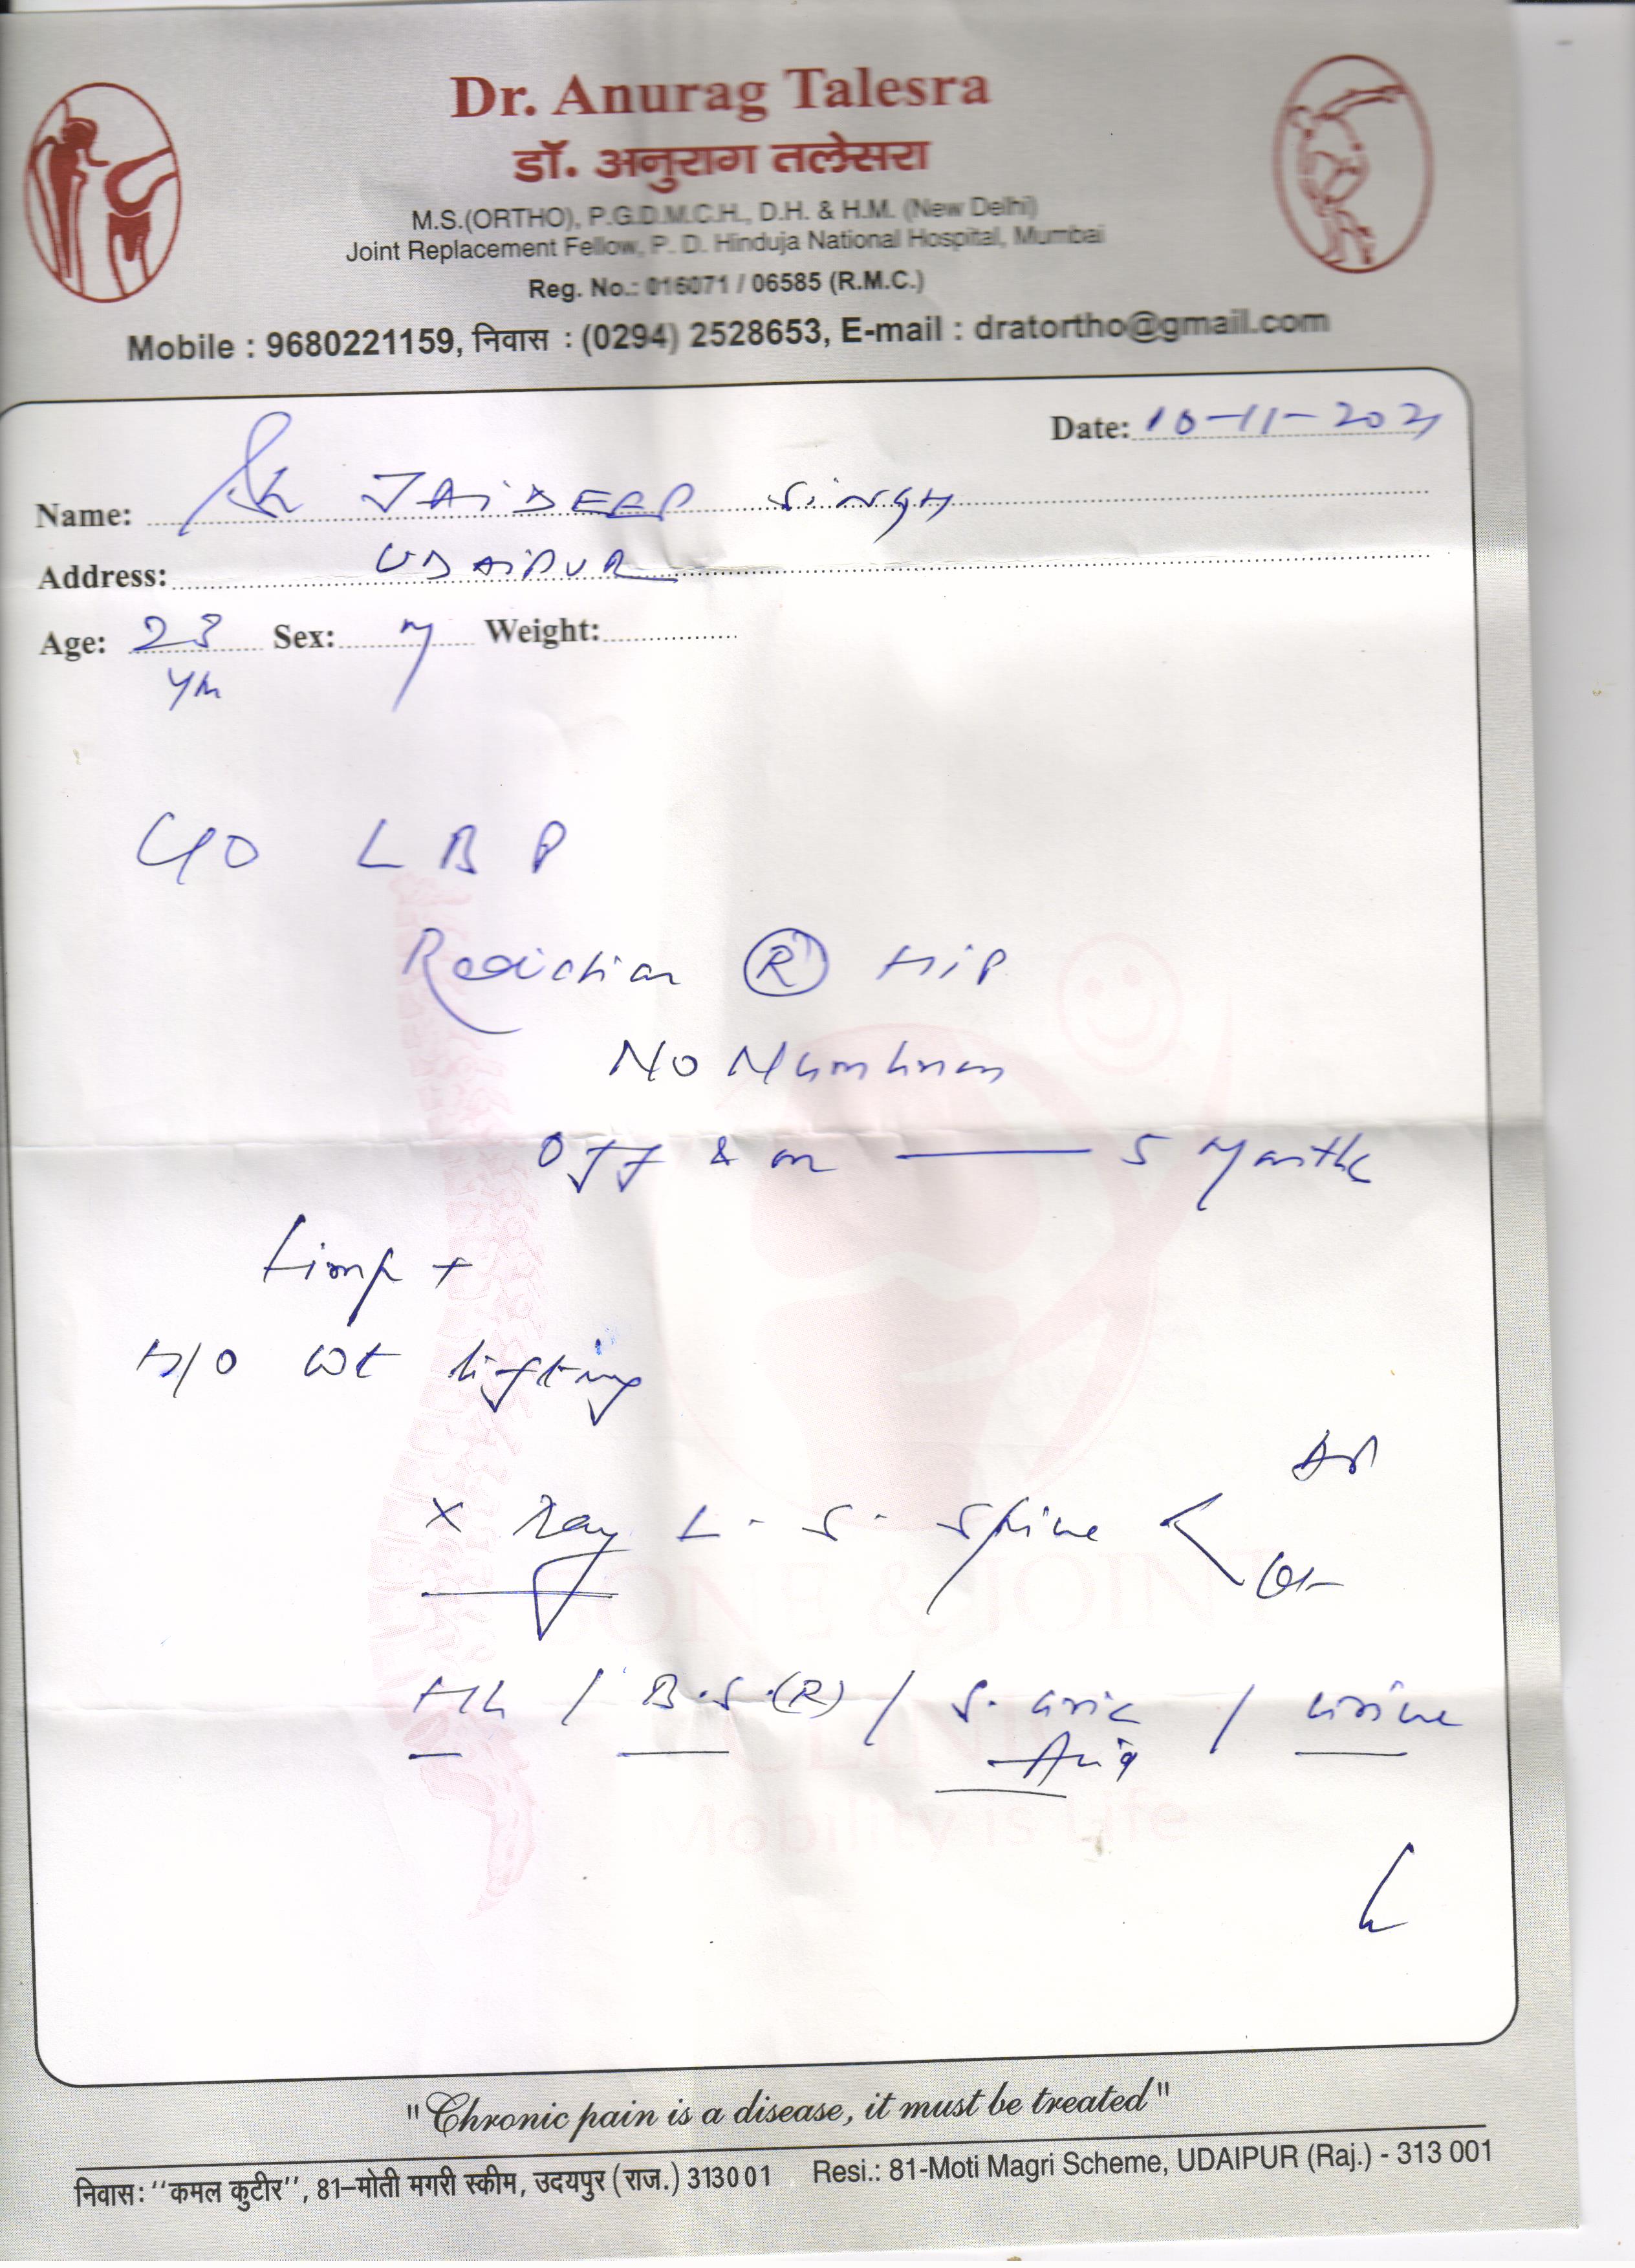 Dr. Anurag Talesra
डॉ. अनुराग तलेसरा
M.S.(ORTHO), P.G.D.M.C.H., D.H. & H.M. (New Delhi)
Joint Replacement Fellow, P. D. Hinduja National Hospital, Mumbai
Reg. No.: 016071 / 06585 (R.M.C.)
Mobile : 9680221159, निवास : (0294) 2528653, E-mail : dratortho@gmail.com
Date: 10-11-2021
Name: JAIDEEP SINGH
Address: UDAIPUR
Age: 23 Sex: M Weight:
C/O L B P
Radiation Ⓡ HIP
NO Numbness
Off & on — 5 Months
Limp +
H/O Wt lifting
X Ray L. S. Spine < AP
Lat
/ B.S.(R) / S. Uric / Urine
Acid
BONE & JOINT
CLINIC
Mobility is Life
"Chronic pain is a disease, it must be treated"
निवास: ''कमल कुटीर'', 81–मोती मगरी स्कीम, उदयपुर (राज.) 313001 Resi.: 81-Moti Magri Scheme, UDAIPUR (Raj.) - 313 001